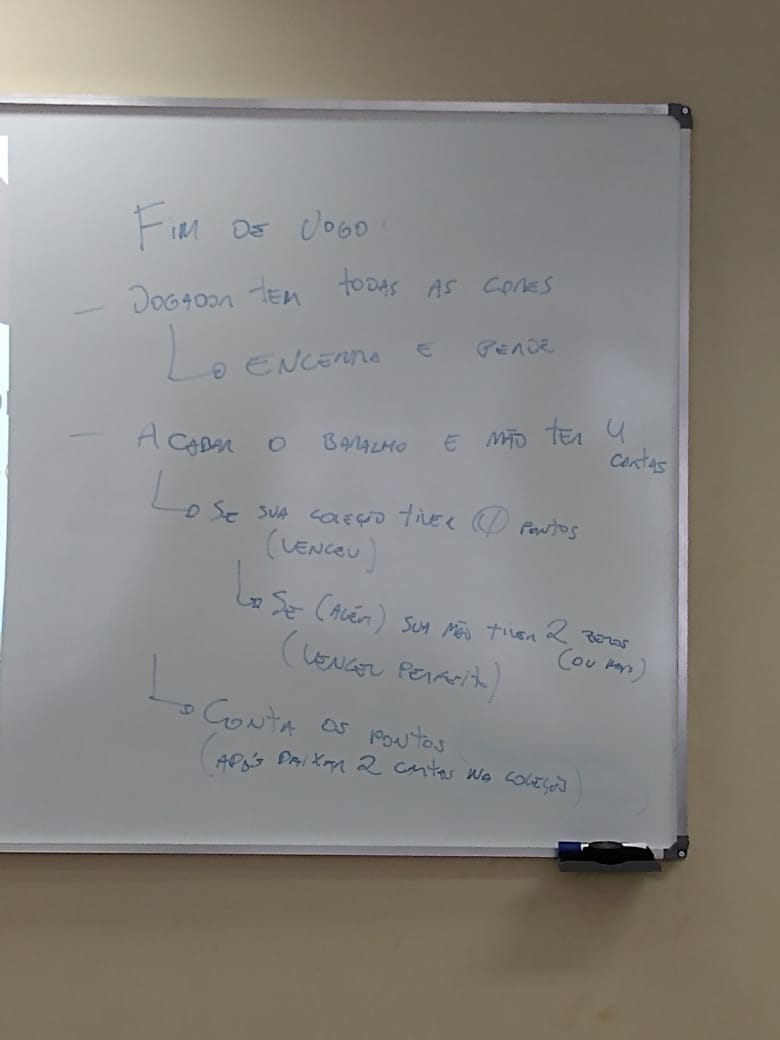 FIM DE JOGO:
- JOGADOR TEM TODAS AS CORES
ENCERRA E PERDE
- ACABAR O BARALHO E NÃO TEM 4
CARTAS
SE SUA COLEÇÃO TIVER 0 PONTOS
(VENCEU)
SE (ALÉM) SUA MÃO TIVER 2 ZEROS
(OU MAIS)
(VENCEU PERFEITO)
CONTA OS PONTOS
(APÓS BAIXAR 2 CARTAS NA COLEÇÃO)